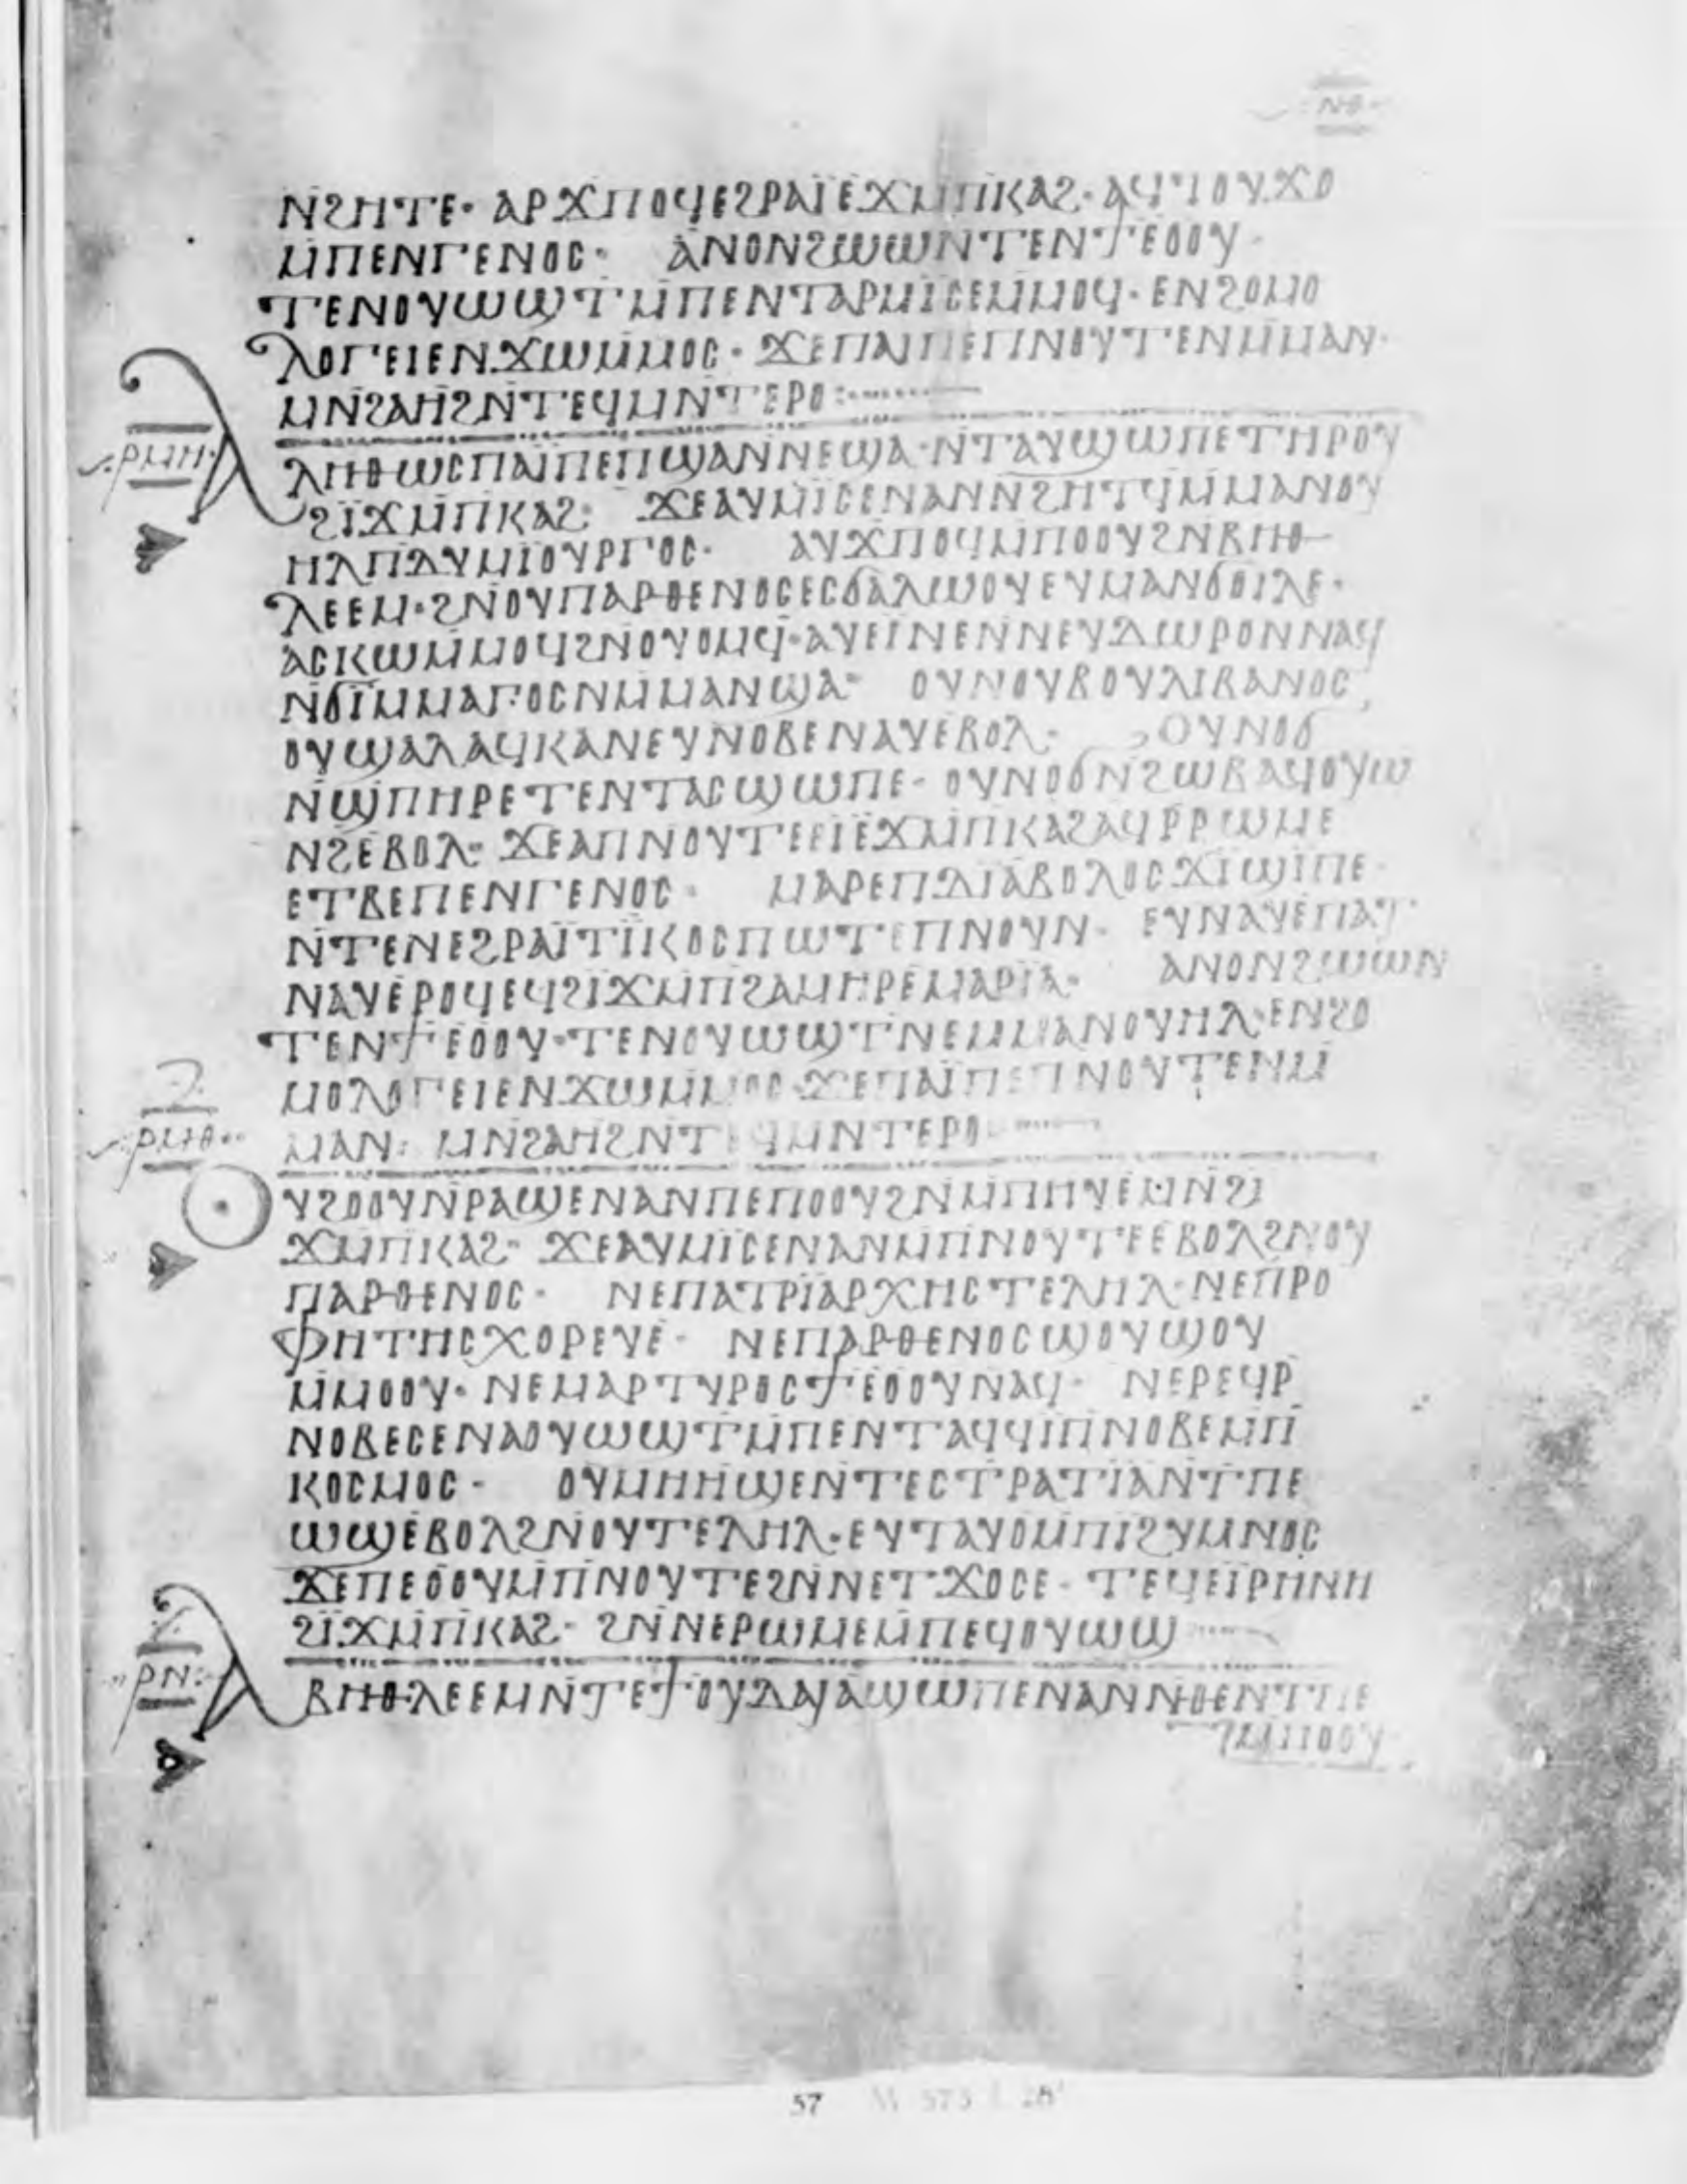 ⲚϨⲎⲦⲈ· ⲀⲢϪⲠⲟϥⲈϨⲢⲀⲒ̈ⲈϪⲘ̄ⲠⲔⲀϨ· ⲀϤϮⲞⲨϪⲞ
Ⲙ̄ⲠⲈⲚⲄⲈⲚⲞⲤ· ⲀⲚⲞⲚϨⲰⲰⲚⲦⲈⲚϮⲈⲞⲞⲨ·
ⲦⲈⲚⲞⲨⲰϢⲦⲘ̄ⲠⲈⲚⲦⲀⲢⲘⲒ̈ⲤⲈⲘ̄ⲘⲞϤ· ⲈⲚϨⲞⲘⲞ
ⲖⲞⲄⲈⲒⲈⲚϪⲰⲘ̄ⲘⲞⲤ· ϪⲈⲠⲀⲒⲠⲈⲠⲚⲞⲨⲦⲈⲚⲘ̄ⲘⲀⲚ·
ⲘⲚ̄ϨⲀⲎϨⲚ̄ⲦⲈϤⲘⲚ̄ⲦⲈⲢⲞ:
·ⲢⲘⲎ·
ⲀⲖⲎⲐⲰⲤⲠⲀⲒ̈ⲠⲈⲠϢⲀⲚⲚⲈϢⲀ·Ⲛ̄ⲦⲀⲨϢⲰⲠⲈⲦⲎⲢⲞⲨ
ϨⲒ̈ϪⲘ̄ⲠⲔⲀϨ: ϪⲈⲀⲨⲘⲒ̈ⲤⲈⲚⲀⲚⲚ̄ϨⲎⲦϤ̄ⲘⲘⲀⲚⲞⲨ
ⲎⲖⲠⲆⲨⲘⲒⲞⲨⲢⲄⲞⲤ· ⲀⲨϪⲠⲞϤⲘ̄ⲠⲞⲞⲨϨⲚ̄ⲂⲎⲐ
ⲖⲈⲈⲘ·ϨⲚ̄ⲞⲨⲠⲀⲢⲐⲈⲚⲞⲤⲈⲤϬⲀⲖⲰⲞⲨⲈⲨⲘⲀⲚϬⲞⲒⲖⲈ·
ⲀⲤⲔⲰⲘ̄ⲘⲞϤϨⲚ̄ⲞⲨⲞⲘϤ̄·ⲀⲨⲈⲒⲚⲈⲚ̄ⲚⲈⲨⲆⲰⲢⲞⲚⲚⲀϤ
Ⲛ̄ϬⲒ̈Ⲙ̄ⲘⲀⲄⲞⲤⲚⲘ̄ⲘⲀⲚϢⲀ· ⲞⲨⲚⲞⲨⲂⲞⲨⲖⲒⲂⲀⲚⲞⲤ
ⲞⲨϢⲀⲖⲀϤⲔⲀⲚⲈⲨⲚⲞⲂⲈⲚⲀⲨⲈⲂⲞⲖ· ⲞⲨⲚⲞϬ
Ⲛ̄ϢⲠⲎⲢⲈⲦⲈⲚⲦⲀⲤϢⲰⲠⲈ· ⲞⲨⲚⲞϬⲚ̄ϨⲰⲂⲀϤⲞⲨⲰ
ⲚϨⲈⲂⲞⲖ· ϪⲈⲀⲠⲚⲞⲨⲦⲈⲈⲒⲈϪⲘ̄ⲠⲔⲀϨⲀϤⲢ̄ⲢⲰⲘⲈ
ⲈⲦⲂⲈⲠⲈⲚⲄⲈⲚⲞⲤ· ⲘⲀⲢⲈⲠⲆⲒⲀⲂⲞⲖⲞⲤϪⲒϢⲒⲠⲈ·
Ⲛ̄ⲦⲈⲚⲈϨⲢⲀⲒ̈ⲦⲒ̈ⲔⲞⲤⲠⲰⲦⲈⲠⲚⲞⲨⲚ· ⲈⲨⲚⲀⲨⲈⲠⲀⲦ
ⲚⲀⲨⲈⲢⲞϤⲈϤϨⲒϪⲘ̄ⲠϨⲀⲘⲎⲢⲈⲘⲀⲢⲒⲀ· ⲀⲚⲞⲚϨⲰⲰⲚ
ⲦⲈⲚϮⲈⲞⲞⲨ·ⲦⲈⲚⲞⲨⲰϢⲦⲚⲈⲘⲘⲀⲚⲞⲨⲎⲖ·ⲈⲚϨⲞ
ⲘⲞⲖⲞⲄⲈⲒⲈⲚϪⲰⲘ̄ⲘⲞⲤ·ϪⲈⲠⲀⲒ̈ⲠⲈⲠⲚⲞⲨⲦⲈⲚⲘ̄
ⲘⲀⲚ: ⲘⲚ̄ϨⲀⲎϨⲚ̄ⲦⲈϤⲘⲚ̄ⲦⲈⲢⲞ
·ⲢⲘⲐ·
ⲞⲨϨⲞⲞⲨⲚ̄ⲢⲀϢⲈⲚⲀⲚⲠⲈⲠⲞⲞⲨϨⲚ̄Ⲙ̄ⲠⲎⲨⲈⲘⲚ̄ϨⲒ
ϪⲘ̄ⲠⲔⲀϨ· ϪⲈⲀⲨⲘⲒ̈ⲤⲈⲚⲀⲚⲘ̄ⲠⲚⲞⲨⲦⲈⲈⲂⲞⲖϨⲚ̄ⲞⲨ
ⲠⲀⲢⲐⲈⲚⲞⲤ· ⲚⲈⲠⲀⲦⲢⲒ̈ⲀⲢⲬⲎⲤⲦⲈⲖⲎⲖ·ⲚⲈⲠⲢⲞ
ⲪⲎⲦⲎⲤⲬⲞⲢⲈⲨⲈ· ⲚⲈⲠⲀⲢⲐⲈⲚⲞⲤϢⲞⲨϢⲞⲨ
Ⲙ̄ⲘⲞⲞⲨ·ⲚⲈⲘⲀⲢⲦⲨⲢⲞⲤϮⲈⲞⲞⲨⲚⲀϤ· ⲚⲈⲢⲈϤⲢ̄
ⲚⲞⲂⲈⲤⲈⲚⲀⲞⲨⲰϢⲦⲘ̄ⲠⲈⲚⲦⲀϤϤⲒⲠⲚⲞⲂⲈⲘ̄Ⲡ
ⲔⲞⲤⲘⲞⲤ· ⲞⲨⲘⲎⲎϢⲈⲚ̄ⲦⲈⲤⲦⲢⲀⲦⲒⲀⲚ̄ⲦⲠⲈ
ⲰϢⲈⲂⲞⲖϨⲚ̄ⲞⲨⲦⲈⲖⲎⲖ·ⲈⲨⲦⲀⲨⲞⲘ̄ⲠⲒϨⲨⲘⲚⲞⲤ
ϪⲈⲠⲈⲞⲞⲨⲘ̄ⲠⲚⲞⲨⲦⲈϨⲚ̄ⲚⲈⲦϪⲞⲤⲈ· ⲦⲈϤⲈⲒⲢⲎⲚⲎ
ϨⲒ̈ϪⲘ̄ⲠⲔⲀϨ· ϨⲚ̄ⲚⲈⲢⲰⲘⲈⲘ̄ⲠⲈϤⲞⲨⲰϢ
·ⲢⲚ·
ⲀⲂⲎⲐⲖⲈⲈⲘⲚ̄ⲦⲈϮⲞⲨⲆⲀⲒⲀϢⲰⲠⲈⲚⲀⲚⲚ̄ⲐⲈⲚ̄ⲦⲠⲈ
57 M 575 f. 28ʳ